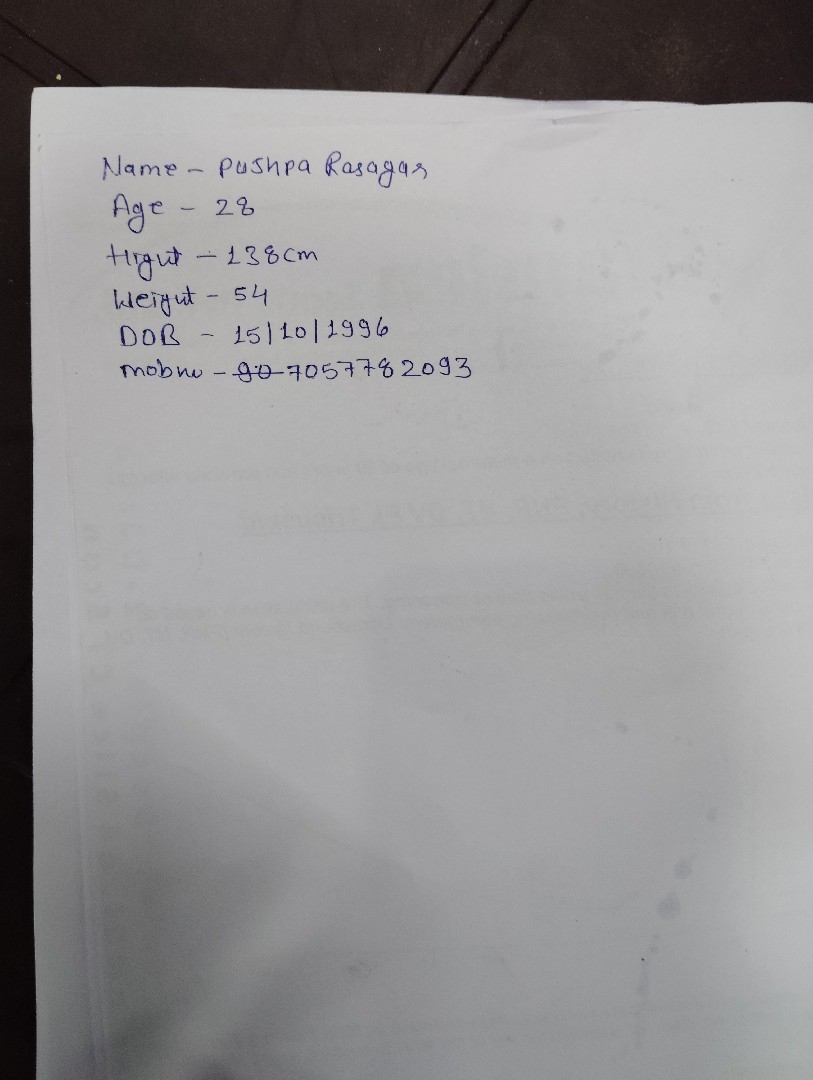 Name - Pushpa Rasagar
Age - 28
Higut - 138cm
Weigut - 54
DOB - 15/10/1996
mobnu - 90 7057782093